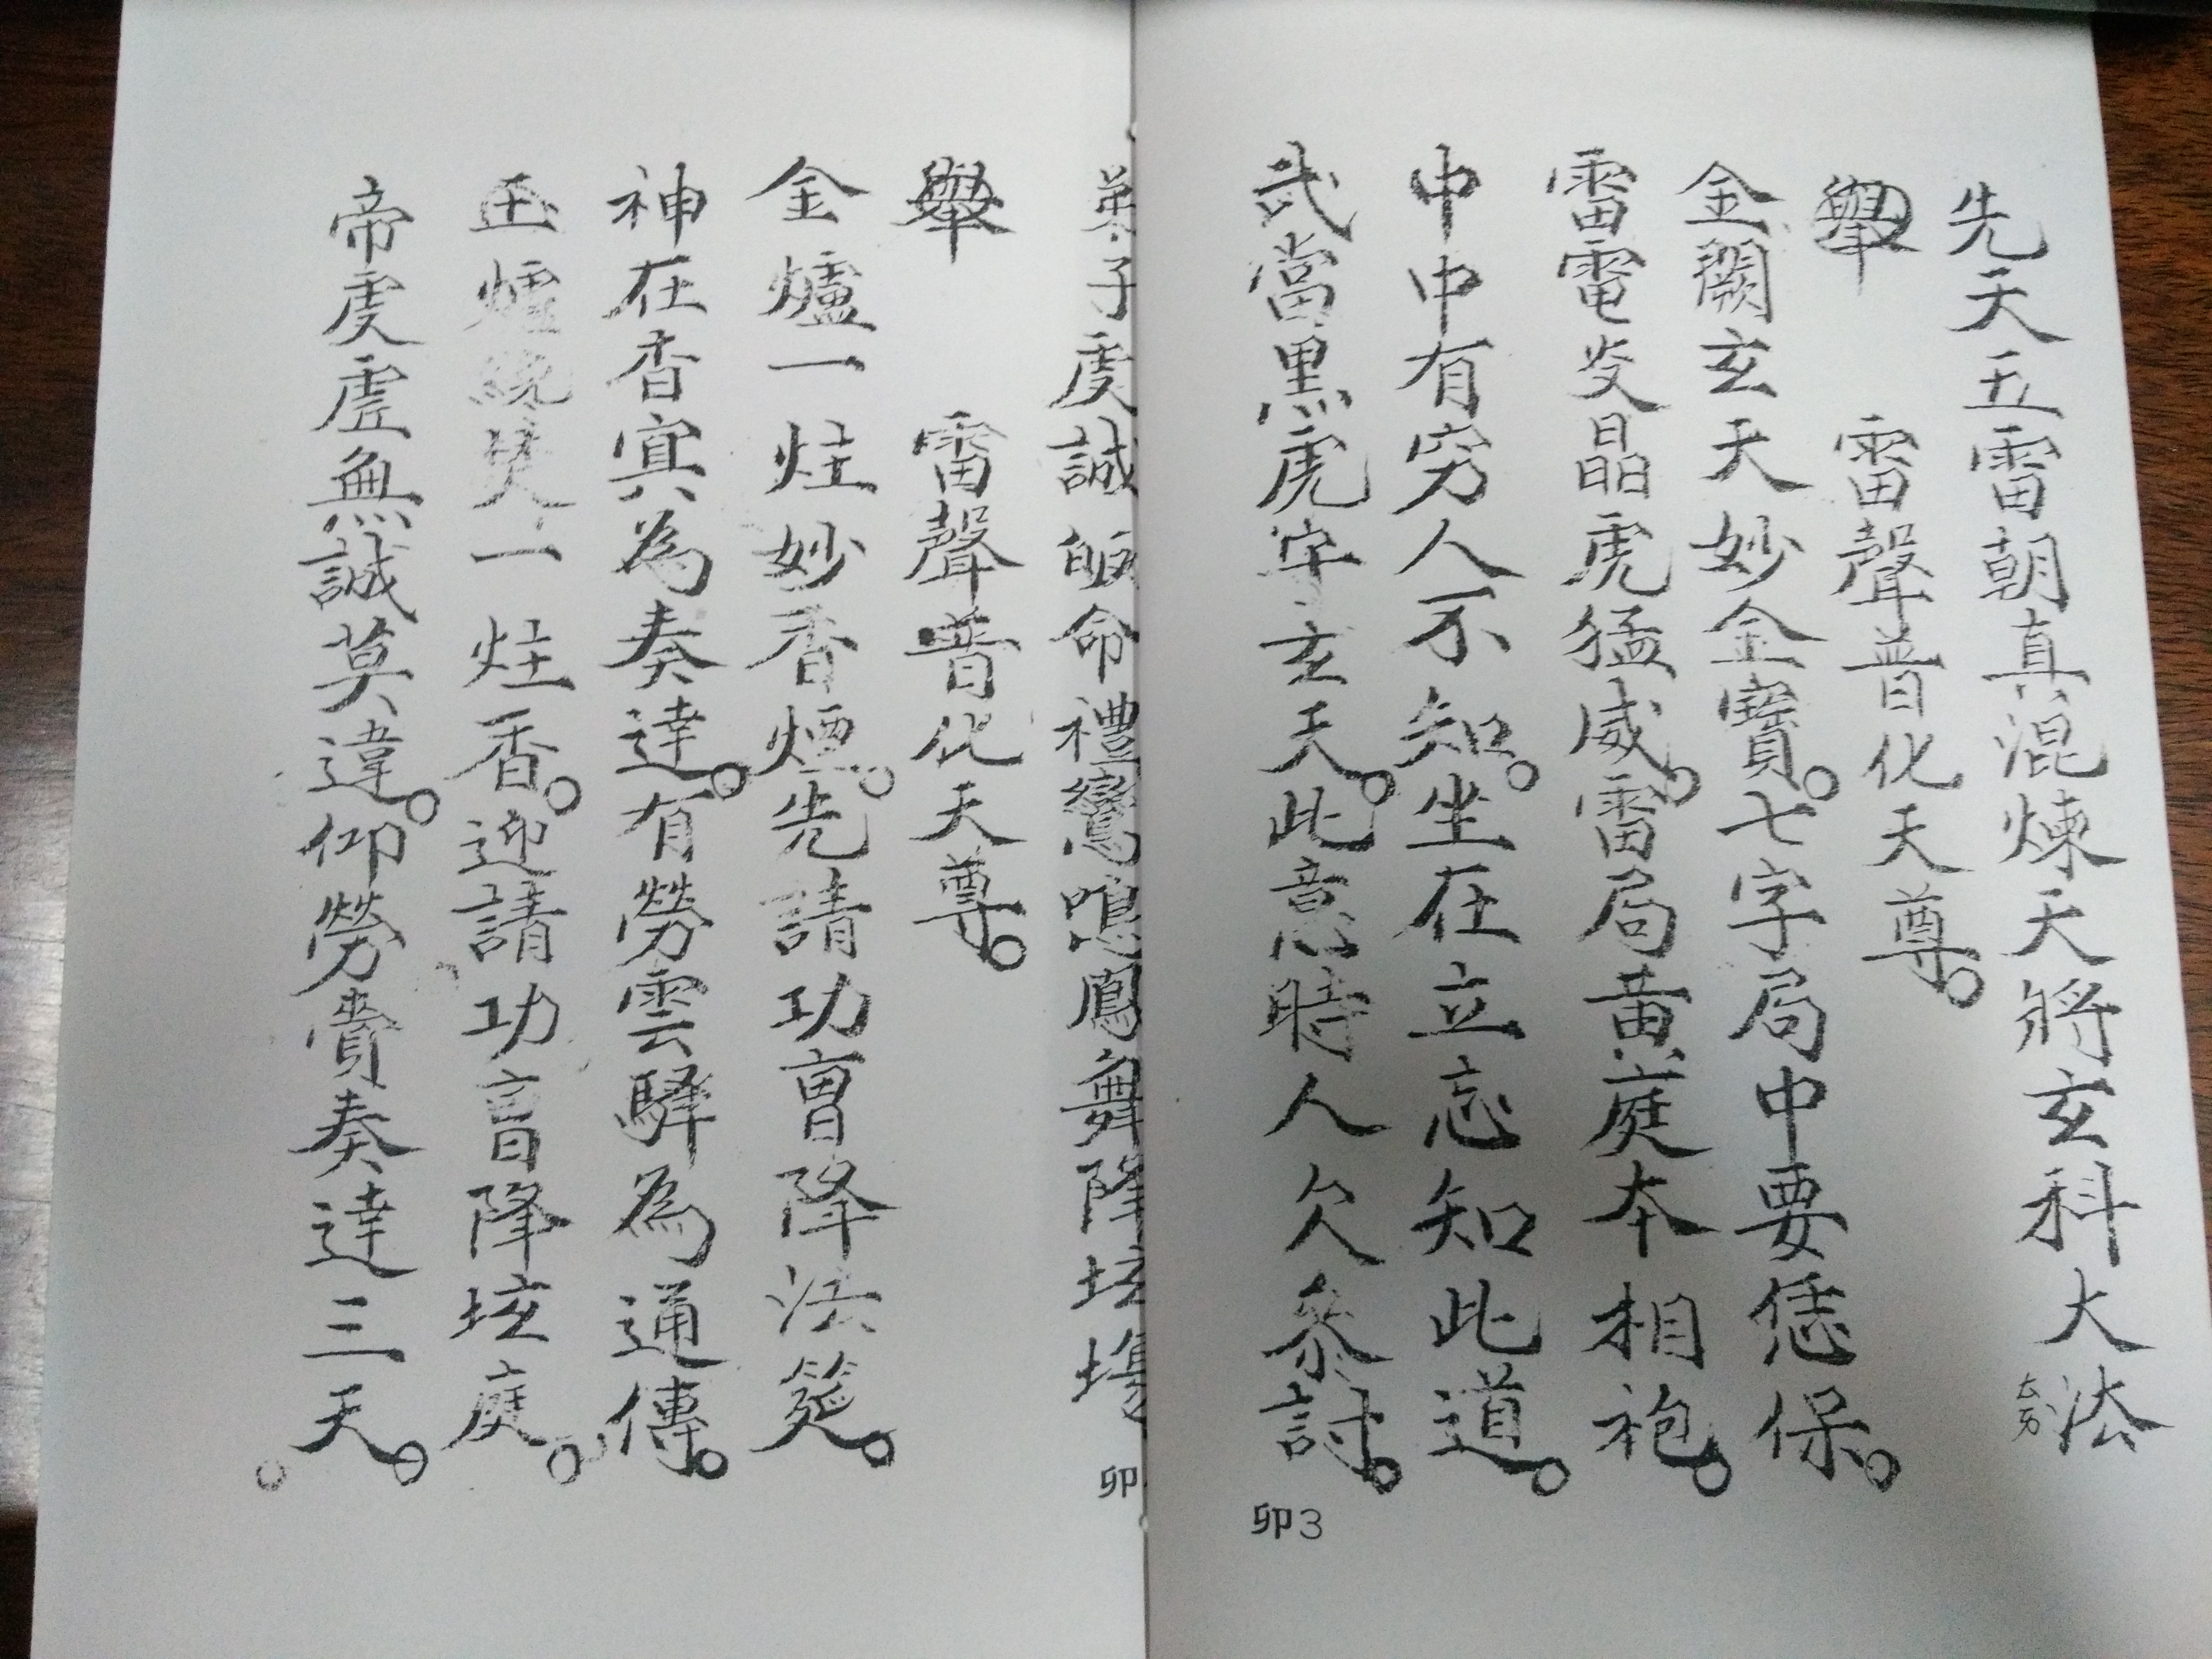 先天五雷朝真混煉天將玄科大法
舉　雷聲普化天尊。
金闕玄天妙金寶。七字局中要恁保。
雷電炎晶虎猛威。雷局黃庭本相袍。
中中有窮人不知。坐在立忘知此道。
武當黑虎字玄天。此意時人欠參討。
卯3
弟子虔誠皈命禮鸞鳴鳳舞降坛場
卯
舉　雷聲普化天尊。
金爐一炷妙香煙。先請功曹降法筵。
神在香寞為奏達。有勞雲驛為通傳。
玉爐一炷香。迎請功曹降坛庭。
帝虔虛無誠莫違。仰勞賫奏達三天。